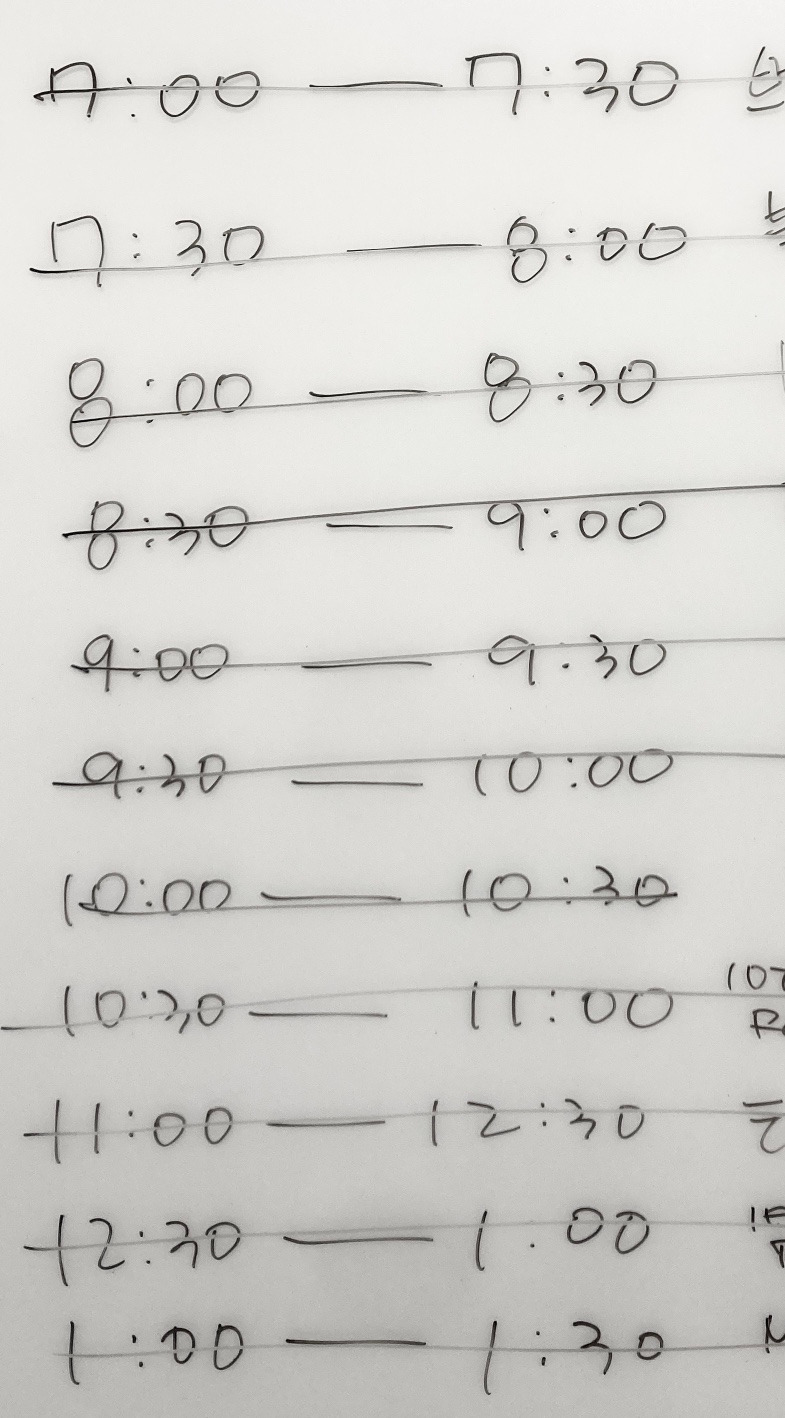 7:00 — 7:30
7:30 — 8:00
8:00 — 8:30
8:30 — 9:00
9:00 — 9:30
9:30 — 10:00
10:00 — 10:30
10:30 — 11:00
11:00 — 12:30
12:30 — 1:00
1:00 — 1:30